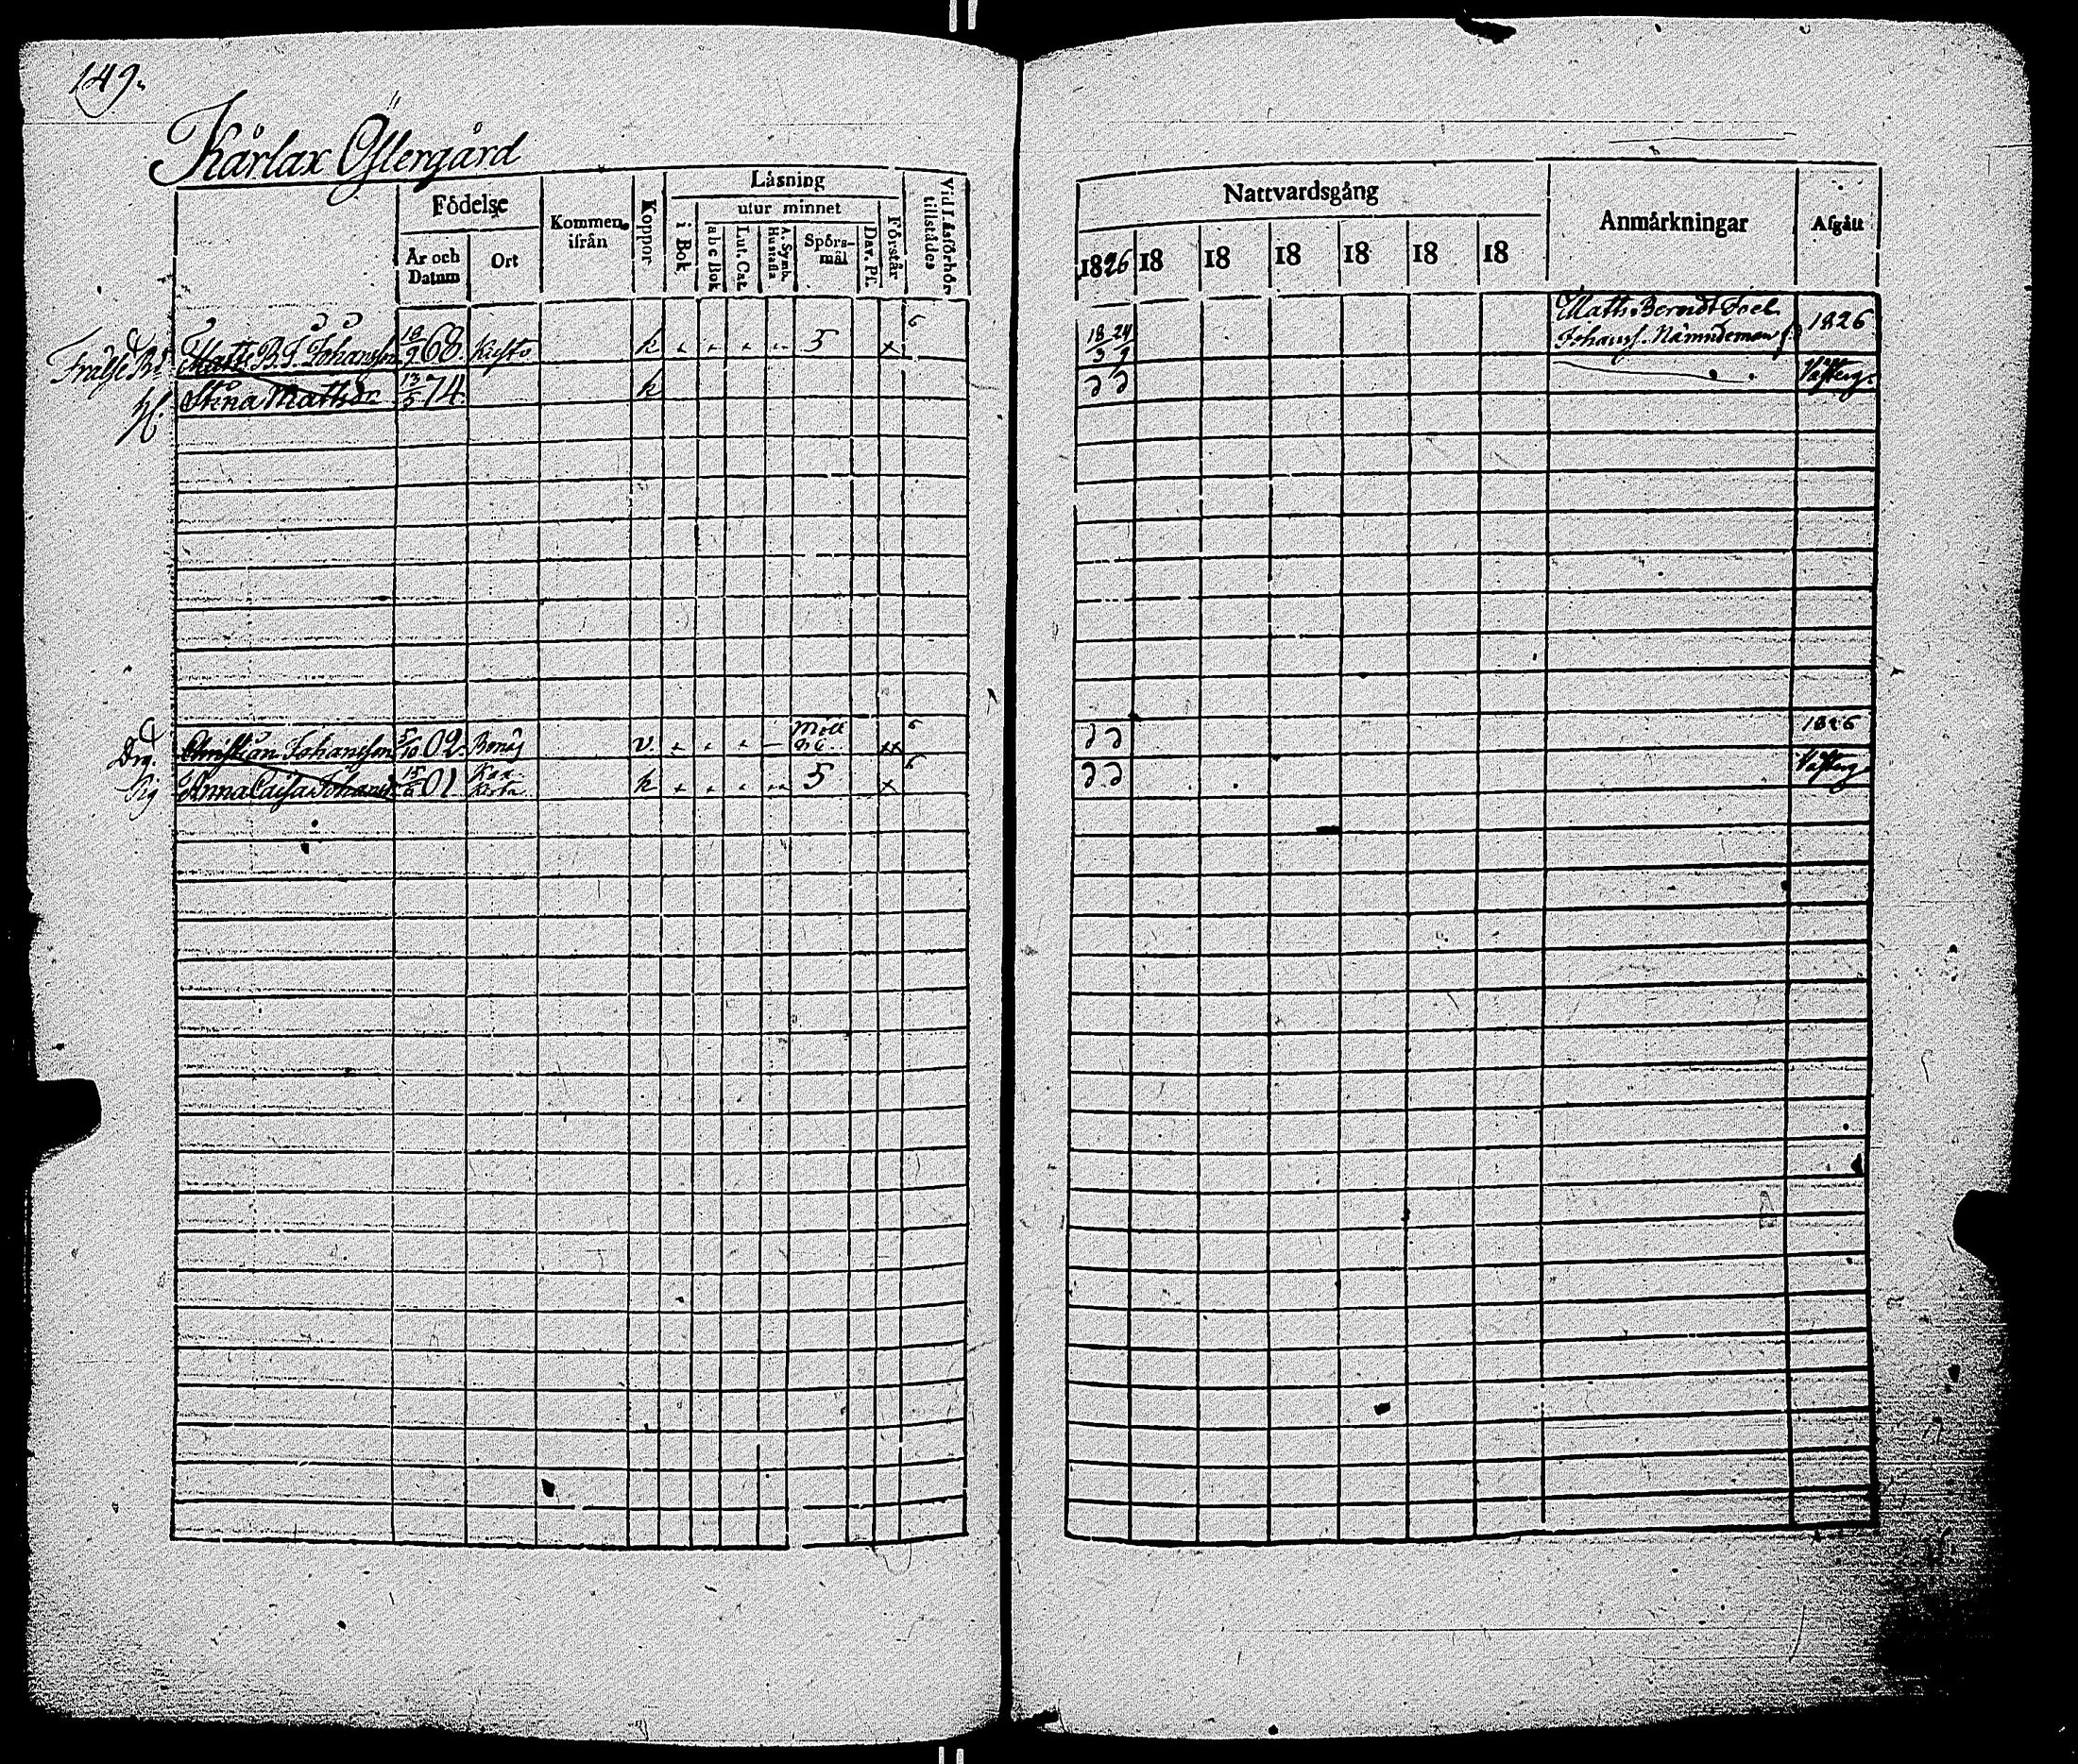 149.
Kårlax Östergård
Födelse
År och Datum
Ort
Kommen ifrån
Koppor
Läsning
i Bok
utur minnet
a b c Bok
Lut. Cat.
A. Symb. Hustafla
Spörsmål
Dav. Ps.
Förstår
Vid Läsförhör tillstädes
Nattvardsgång
1826 18 18 18 18 18 18
Anmärkningar
Afgått
Frälse Bd. Matts B. J. Johansson 18/9 68. k 5 x 6 18/3 24/9 Matts Berndt Joel Johanss. Nämndeman 1826
H. Stina Mattsdr 13/5 74. k Västerg.
Drg. Christian Johansson 5/10 02. Bonäs v. xx 6 1826
Pig Anna Caisa Johansd 01 k 5 x 6 Västerg